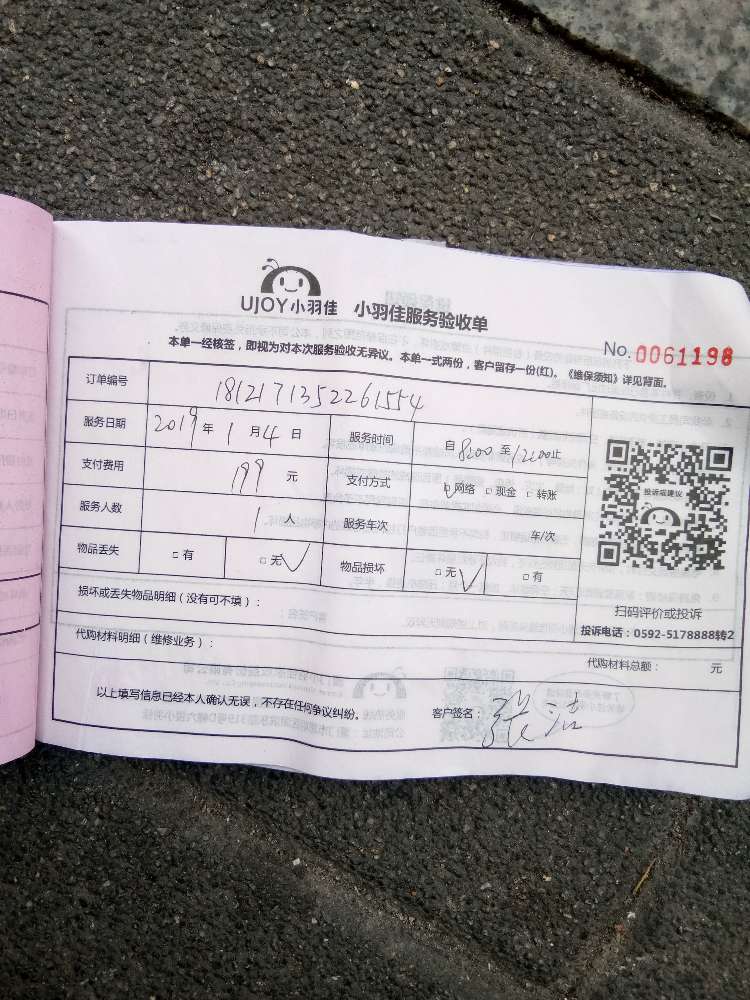 UJOY小羽佳 小羽佳服务验收单
No. 0061198
本单一经核签，即视为对本次服务验收无异议。本单一式两份，客户留存一份(红)。《维保须知》详见背面。
订单编号 1812171352261554
服务日期 2019年1月4日 服务时间 自8:00至12:00止
支付费用 199元 支付方式 ☑网络 □现金 □转账
服务人数 1人 服务车次 车/次
物品丢失 □有 □无✓ 物品损坏 □无✓ □有
投诉或建议
扫码评价或投诉
投诉电话：0592-5178888转2
损坏或丢失物品明细（没有可不填）：
代购材料明细（维修业务）：
代购材料总额： 元
以上填写信息已经本人确认无误，不存在任何争议纠纷。 客户签名：张洁